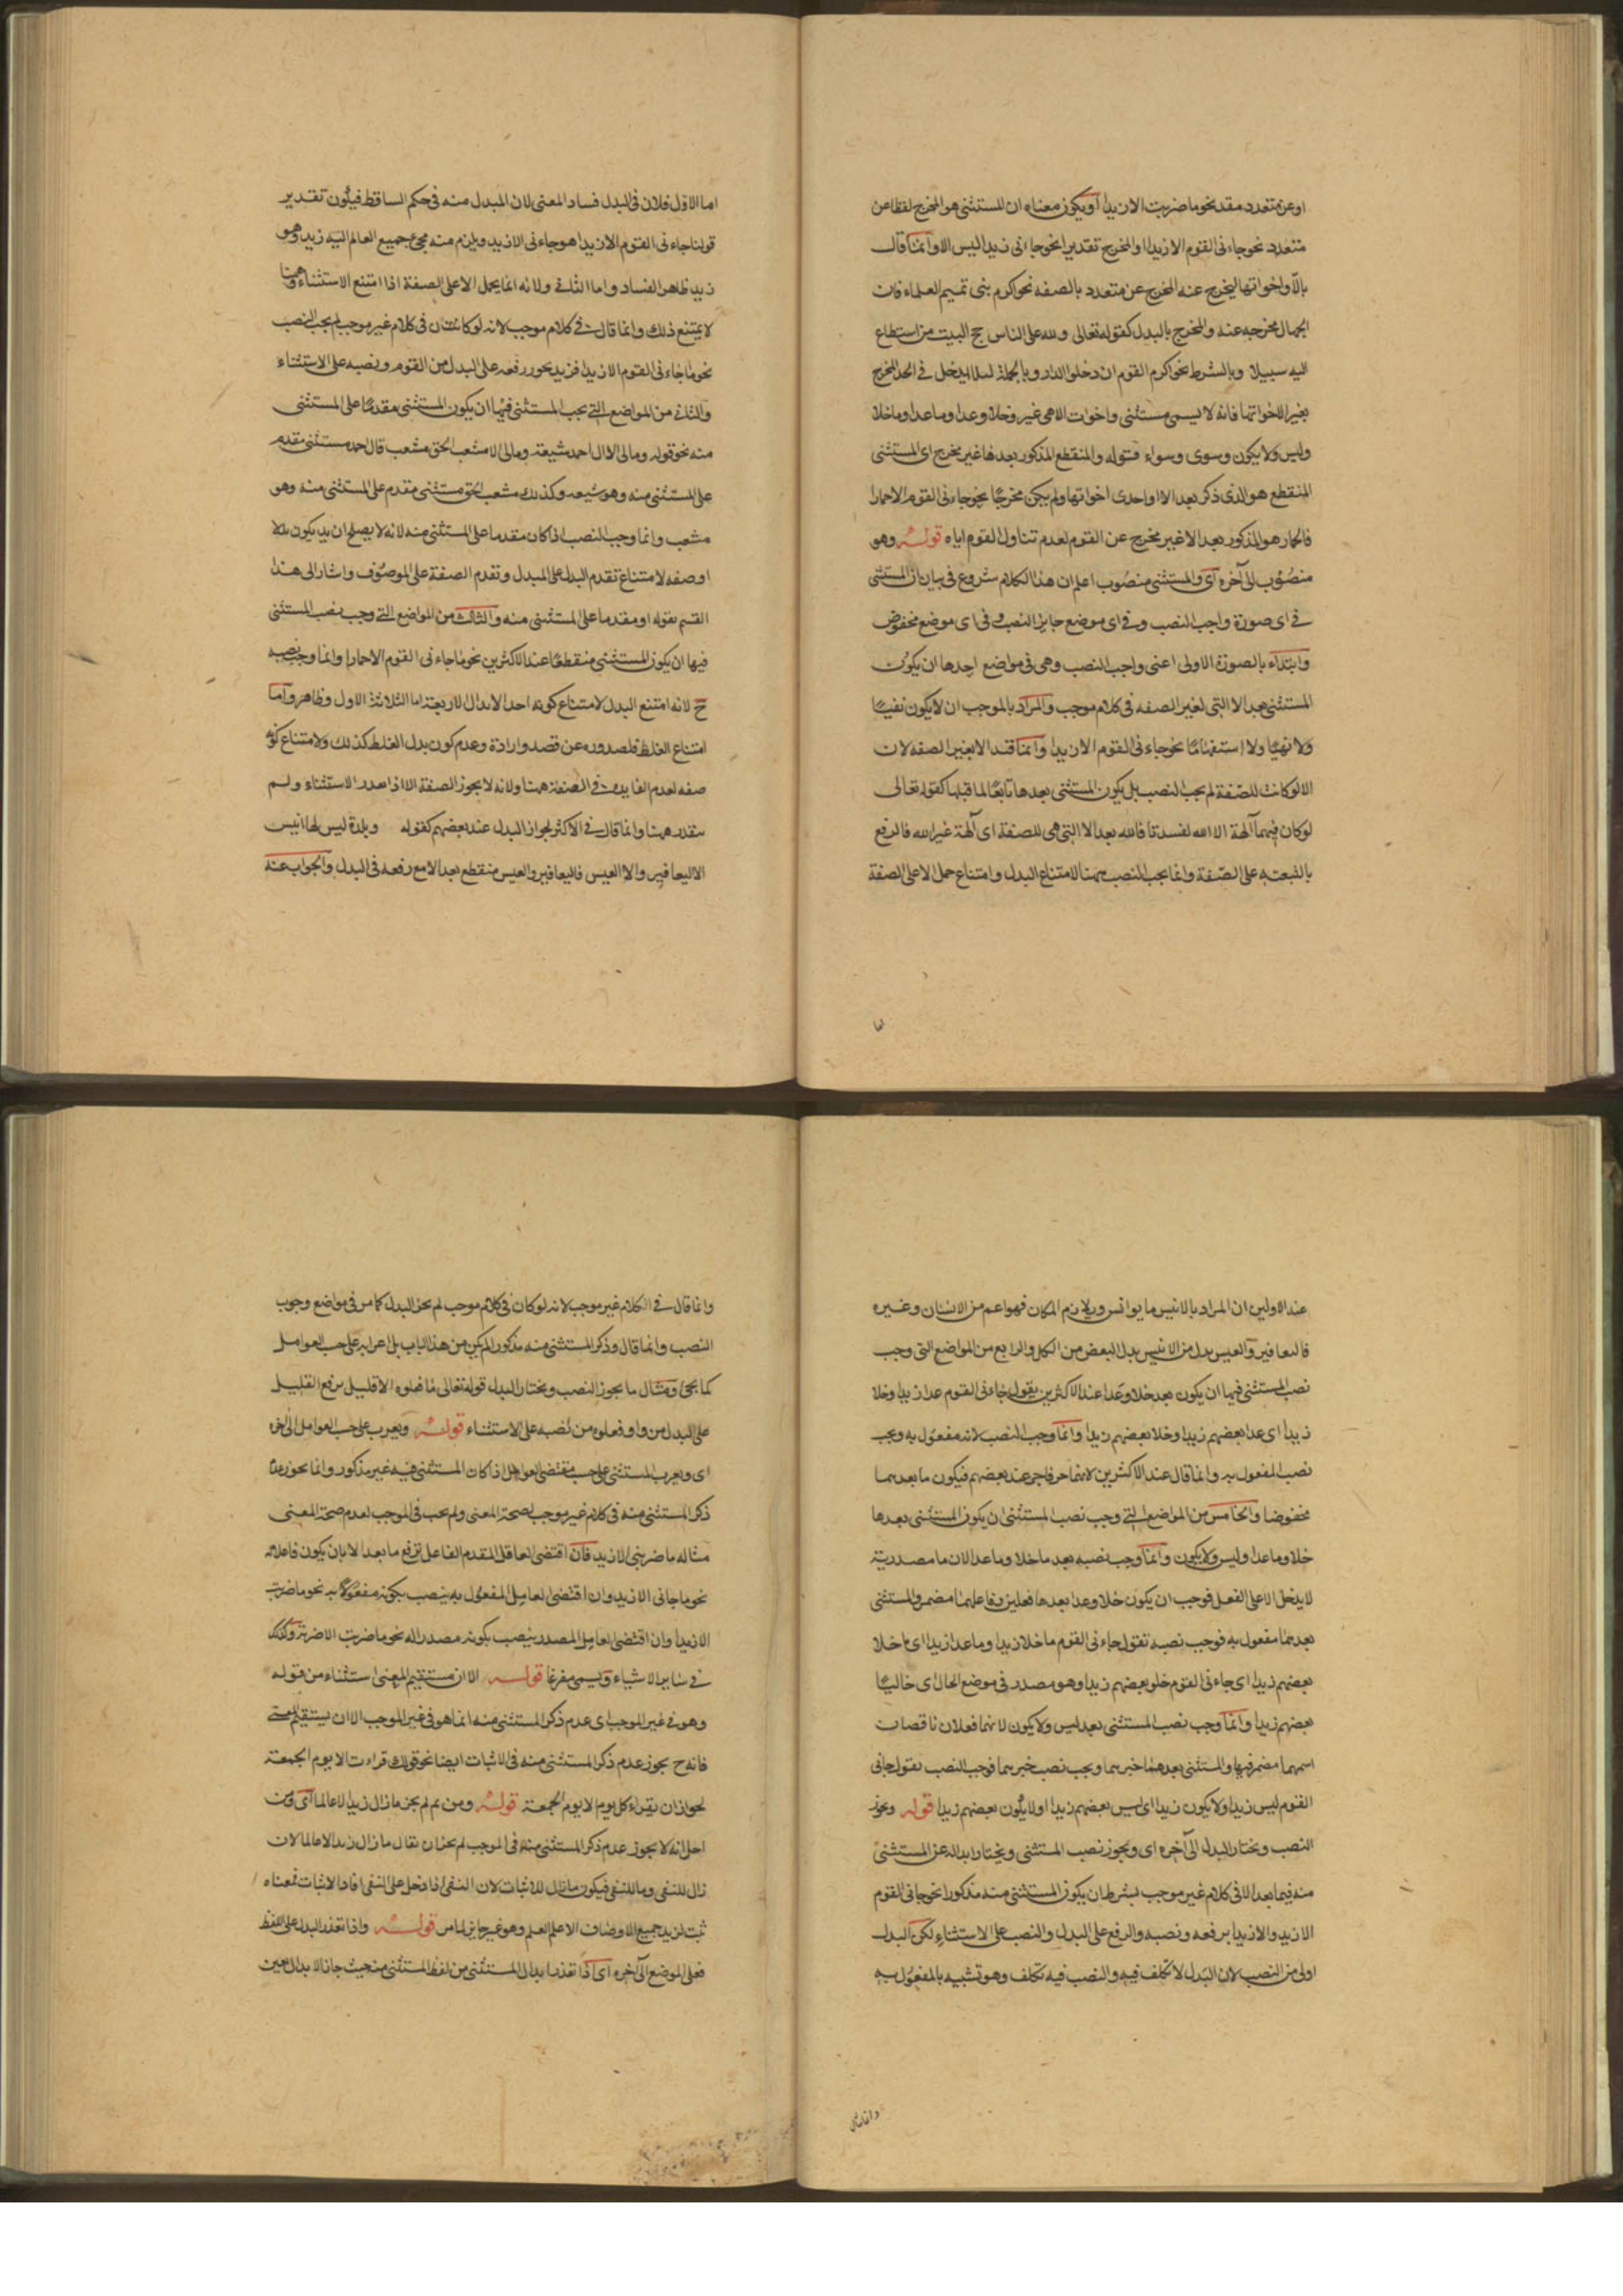 او عن متعدد مقدر نحو ما ضربت الا زيدا او يكون معناه ان المستثنى هو المخرج لفظا عن
متعدد نحو جاءنى القوم الا زيدا او المخرج تقديرا نحو جاءنى زيدا ليس الا وانما قال
بالا واخواتها ليخرج عنه المخرج عن متعدد بالصفه نحو اكرم بنى تميم العلماء فان
الجهال مخرجه عنه والمخرج بالبدل كقوله تعالى ولله على الناس حج البيت من استطاع
اليه سبيلا وبالشرط نحو اكرم القوم ان دخلوا الدار وبالجملة لئلا يدخل فى الحد المخرج
بغير الا اخواتها فانه لا يسمى مستثنى واخوات الا هى غير وخلا وعدا وما عدا وما خلا
وليس ولا يكون وسوى وسواء فقوله والمنقطع المذكور بعدها غير مخرج اى المستثنى
المنقطع هو الذى ذكر بعد الا او احدى اخواتها ولم يكن مخرجا نحو جاءنى القوم الا حمارا
فالحمار هو المذكور بعد الا غير مخرج عن القوم لعدم تناول القوم اياه قوله وهو
منصوب الى آخره اى والمستثنى منصوب اعلم ان هذا الكلام شروع فى بيان ان المستثنى
فى اى صورة واجب النصب وفى اى موضع جايز النصب وفى اى موضع مخفوض
وابتداء بالصورة الاولى اعنى واجب النصب وهى فى مواضع احدها ان يكون
المستثنى بعد الا التى لغير الصفه فى كلام موجب والمراد بالموجب ان لا يكون نفيا
ولا نهيا ولا استفهاما نحو جاءنى القوم الا زيدا وانما قيد الا بغير الصفه لان
الا لو كانت للصفة لم يجب النصب بل يكون المستثنى بعدها تابعا لما قبلها كقوله تعالى
لو كان فيهما آلهة الا الله لفسدتا فالله بعد الا التى هى للصفة اى آلهة غير الله فالرفع
بالتبعيه على الصفة وانما يجب النصب ههنا لامتناع البدل وامتناع حمل الا على الصفة
اما
اما الاول فلان فى البدل فساد المعنى لان المبدل منه فى حكم الساقط فيكون تقدير
قولنا جاءنى القوم الا زيدا هو جاءنى الا زيد ويلزم منه مجئ جميع العالم اليه زيد وهو
زيد ظاهر الفساد واما الثانى ولانه انما يحمل الا على الصفة اذا امتنع الاستثناء وههنا
لا يمتنع ذلك وانما قال فى كلام موجب لانه لو كانت ان فى كلام غير موجب لم يجب النصب
نحو ما جاءنى القوم الا زيدا فزيد يجوز رفعه على البدل من القوم ونصبه على الاستثناء
والثانى من المواضع التى يجب المستثنى فيها ان يكون المستثنى مقدما على المستثنى
منه نحو قوله ومالى الا ال احمد شيعة ومالى الا مشعب الحق مشعب فال احمد مستثنى مقدم
على المستثنى منه وهو شيعه وكذلك مشعب الحق مستثنى مقدم على المستثنى منه وهو
مشعب وانما وجب النصب اذا كان مقدما على المستثنى منه لانه لا يصلح ان يكون بدلا
او صفه لامتناع تقدم البدل على المبدل وتقدم الصفة على الموصوف واشار الى هذا
القسم بقوله او مقدما على المستثنى منه والثالث من المواضع التى وجب نصب المستثنى
فيها ان يكون المستثنى منقطعا عند الاكثرين نحو ما جاءنى القوم الا حمارا وانما وجب نصبه
ح لانه امتنع البدل لامتناع كونه احد الابدال الاربعة اما الثلاثة الاول وظاهر واما
امتناع الغلط فلصدوره عن قصد وارادة وعدم كون بدل الغلط كذلك ولامتناع كونه
صفه لعدم الفايده فى الصفة ههنا ولانه لا يجوز الصفة الا اذا تعذر الاستثناء ولم
يتعذر ههنا وانما قال فى الاكثر لجواز البدل عند بعضهم كقوله وبلدة ليس لها انيس
الا اليعافير والا العيس فاليعافير والعيس منقطع بعد الا مع رفعه فى البدل والجواب عنه
عند الاولين ان المراد بالانيس ما يوانس ويلازم المكان فهو اعم من الانسان وغيره
فاليعافير والعيس بدل من الانيس بدل البعض من الكل والرابع من المواضع التى وجب
نصب المستثنى فيها ان يكون بعد خلا وعدا عند الاكثرين يقول جاءنى القوم عدا زيدا وخلا
زيدا اى عدا بعضهم زيدا وخلا بعضهم زيدا وانما وجب النصب لانه مفعول به ويجب
نصب المفعول به وانما قال عند الاكثرين لانهما حرفا جر عند بعضهم فيكون ما بعدهما
مخفوضا والخامس من المواضع التى وجب نصب المستثنى ان يكون المستثنى بعد ما
خلا وما عدا وليس ولا يكون وانما وجب نصبه بعد ما خلا وما عدا لان ما مصدرية
لا يدخل الا على الفعل فوجب ان يكون خلا وعدا بعدها فعلين وفاعلهما مضمر والمستثنى
بعدهما مفعول به فوجب نصبه تقول جاءنى القوم ما خلا زيدا وما عدا زيدا اى ما خلا
بعضهم زيدا اى جاءنى القوم خلو بعضهم زيدا وهو مصدر فى موضع الحال اى خاليا
بعضهم زيدا وانما وجب نصب المستثنى بعد ليس ولا يكون لانهما فعلان ناقصان
اسمهما مضمر فيها والمستثنى بعدهما خبرهما ويجب نصب خبرهما فوجب النصب تقول جانى
القوم ليس زيدا ولا يكون زيدا اى ليس بعضهم زيدا اولا يكون بعضهم زيدا قوله ويجوز
النصب ويختار البدل الى آخره اى ويجوز نصب المستثنى ويختار ابداله عن المستثنى
منه فيما بعد الا فى كلام غير موجب بشرط ان يكون المستثنى منه مذكورا نحو جانى القوم
الا زيد والا زيدا برفعه ونصبه والرفع على البدل والنصب على الاستثناء لكن البدل
اولى من النصب لان البدل لا تكلف فيه والنصب فيه تكلف وهو تشبيه بالمفعول به
وانما قال
وانما قال فى الكلام غير موجب لانه لو كان فى كلام موجب لم يجز البدل كما مر فى مواضع وجوب
النصب وانما قال وذكر المستثنى منه مذكور لم يكن من هذا الباب بل اعرابه على حسب العوامل
كما يجئ ومثال ما يجوز النصب ويختار البدل قوله تعالى ما فعلوه الا قليل برفع القليل
على البدل من واو فعلوه من نصبه على الاستثناء قوله ويعرب على حسب العوامل الى اخره
اى ويعرب المستثنى على حسب مقتضى العوامل اذا كان المستثنى فيه غير مذكور وانما يجوز عدم
ذكر المستثنى منه فى كلام غير موجب لصحة المعنى ولم يجب فى الموجب لعدم صحة المعنى
مثاله ما ضربنى الا زيد فان اقتضى العامل المقدم الفاعل ترفع ما بعد الا بان يكون فاعلا له
نحو ما جانى الا زيد وان اقتضى العامل المفعول به ينصب بكونه مفعولا به نحو ما ضربت
الا زيدا وان اقتضى العامل المصدر ينصب بكونه مصدرا له نحو ما ضربت الا ضربة وكذلك
فى سائر الاشياء ويسمى مفرغا قوله الا ان يستقيم المعنى استثناء من قوله
وهو فى غير الموجب اى عدم ذكر المستثنى منه انما هو فى غير الموجب الا ان يستقيم المعنى
فانه ح يجوز عدم ذكر المستثنى منه فى الاثبات ايضا نحو قولك قراءت الا يوم الجمعة
لجواز ان يقراء كل يوم الا يوم الجمعة قوله ومن ثم لم يجز ما زال زيد الا عالما اى ومن
اجل انه لا يجوز عدم ذكر المستثنى منه فى الموجب لم يجز ان يقال ما زال زيد الا عالما لان
زال للنفى وما للنفى فيكون ما زال للاثبات لان النفى اذا دخل على النفى افاد الاثبات فمعناه
ثبت لزيد جميع الاوصاف الا علم العلم وهو غير جايز لما مر قوله واذا تعذر البدل على اللفظ
فعلى الموضع الى آخره اى اذا تعذر ابدال المستثنى من لفظ المستثنى من حيث جاز الابدال